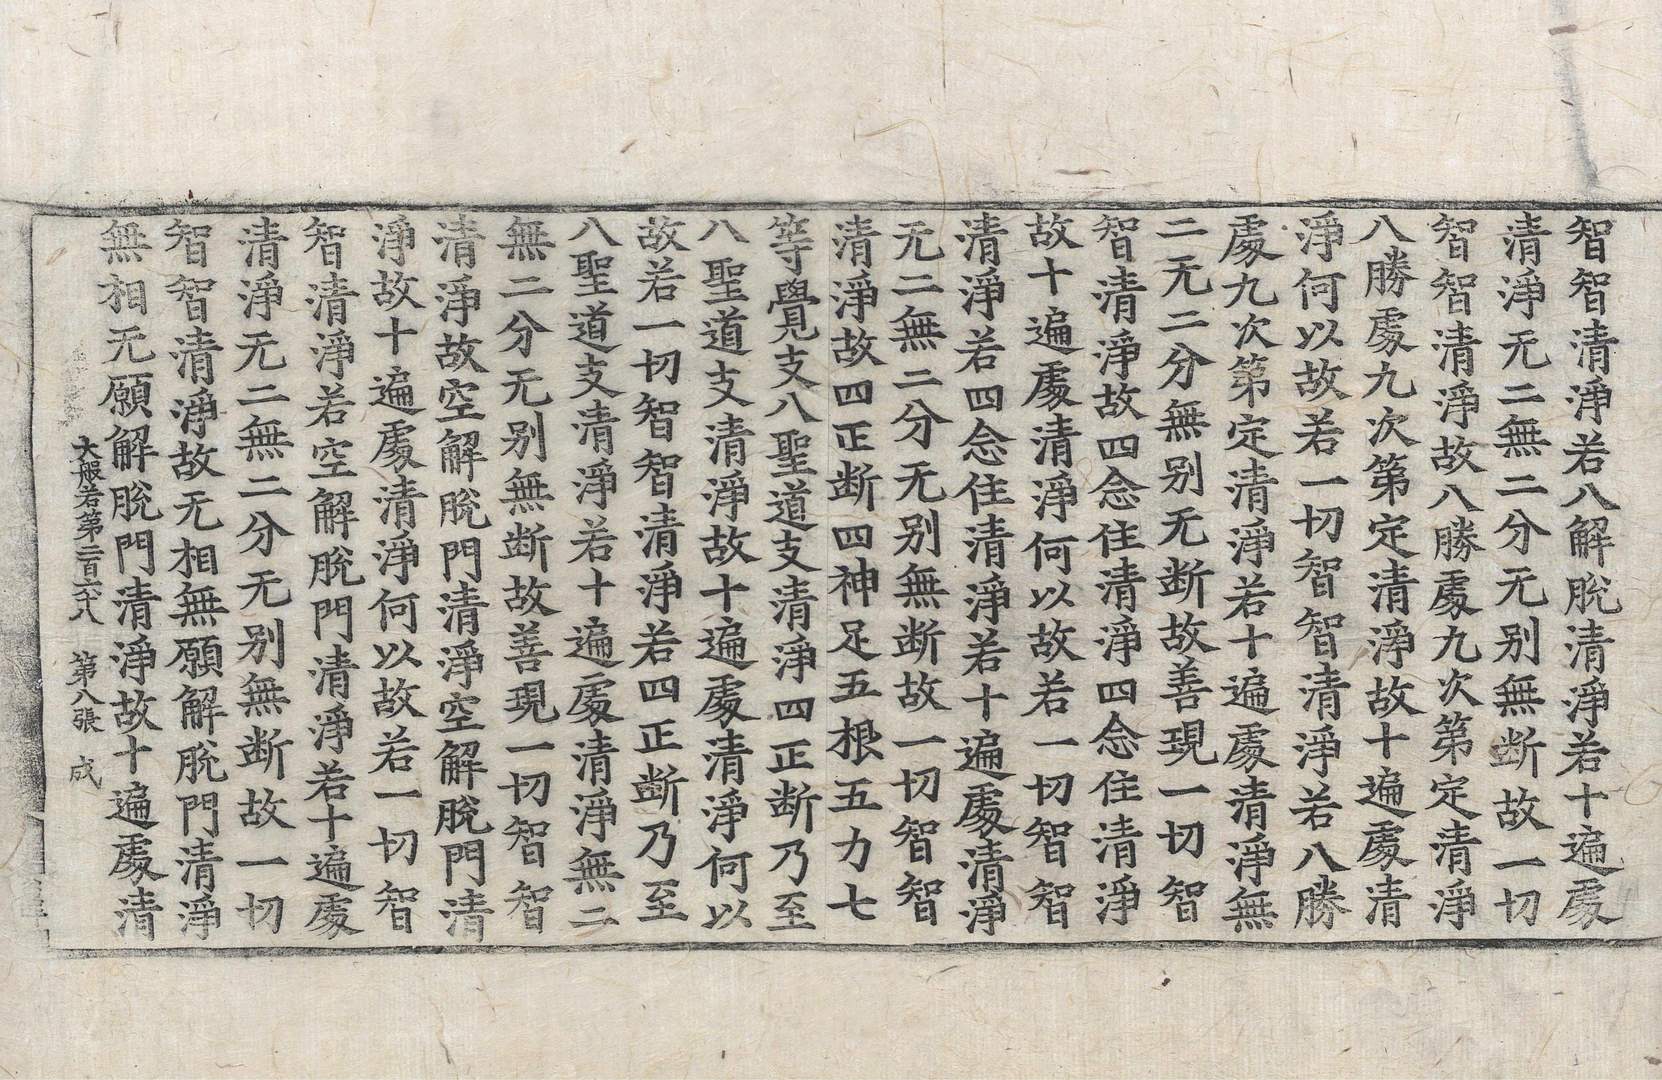 智智清淨若八解脫清淨若十遍處
清淨无二無二分无别無断故一切
智智清淨故八勝處九次第定清淨
八勝處九次第定清淨故十遍處清
淨何以故若一切智智清淨若八勝
處九次第定清淨若十遍處清淨無
二无二分無别无断故善現一切智
智清淨故四念住清淨四念住清淨
故十遍處清淨何以故若一切智智
清淨若四念住清淨若十遍處清淨
无二無二分无别無断故一切智智
清淨故四正断四神足五根五力七
等覺支八聖道支清淨四正断乃至
八聖道支清淨故十遍處清淨何以
故若一切智智清淨若四正断乃至
八聖道支清淨若十遍處清淨無二
無二分无别無断故善現一切智智
清淨故空解脫門清淨空解脫門清
淨故十遍處清淨何以故若一切智
智清淨若空解脫門清淨若十遍處
清淨无二無二分无别無断故一切
智智清淨故无相無願解脫門清淨
無相无願解脫門清淨故十遍處清
大般若第二百六八 第八張 成